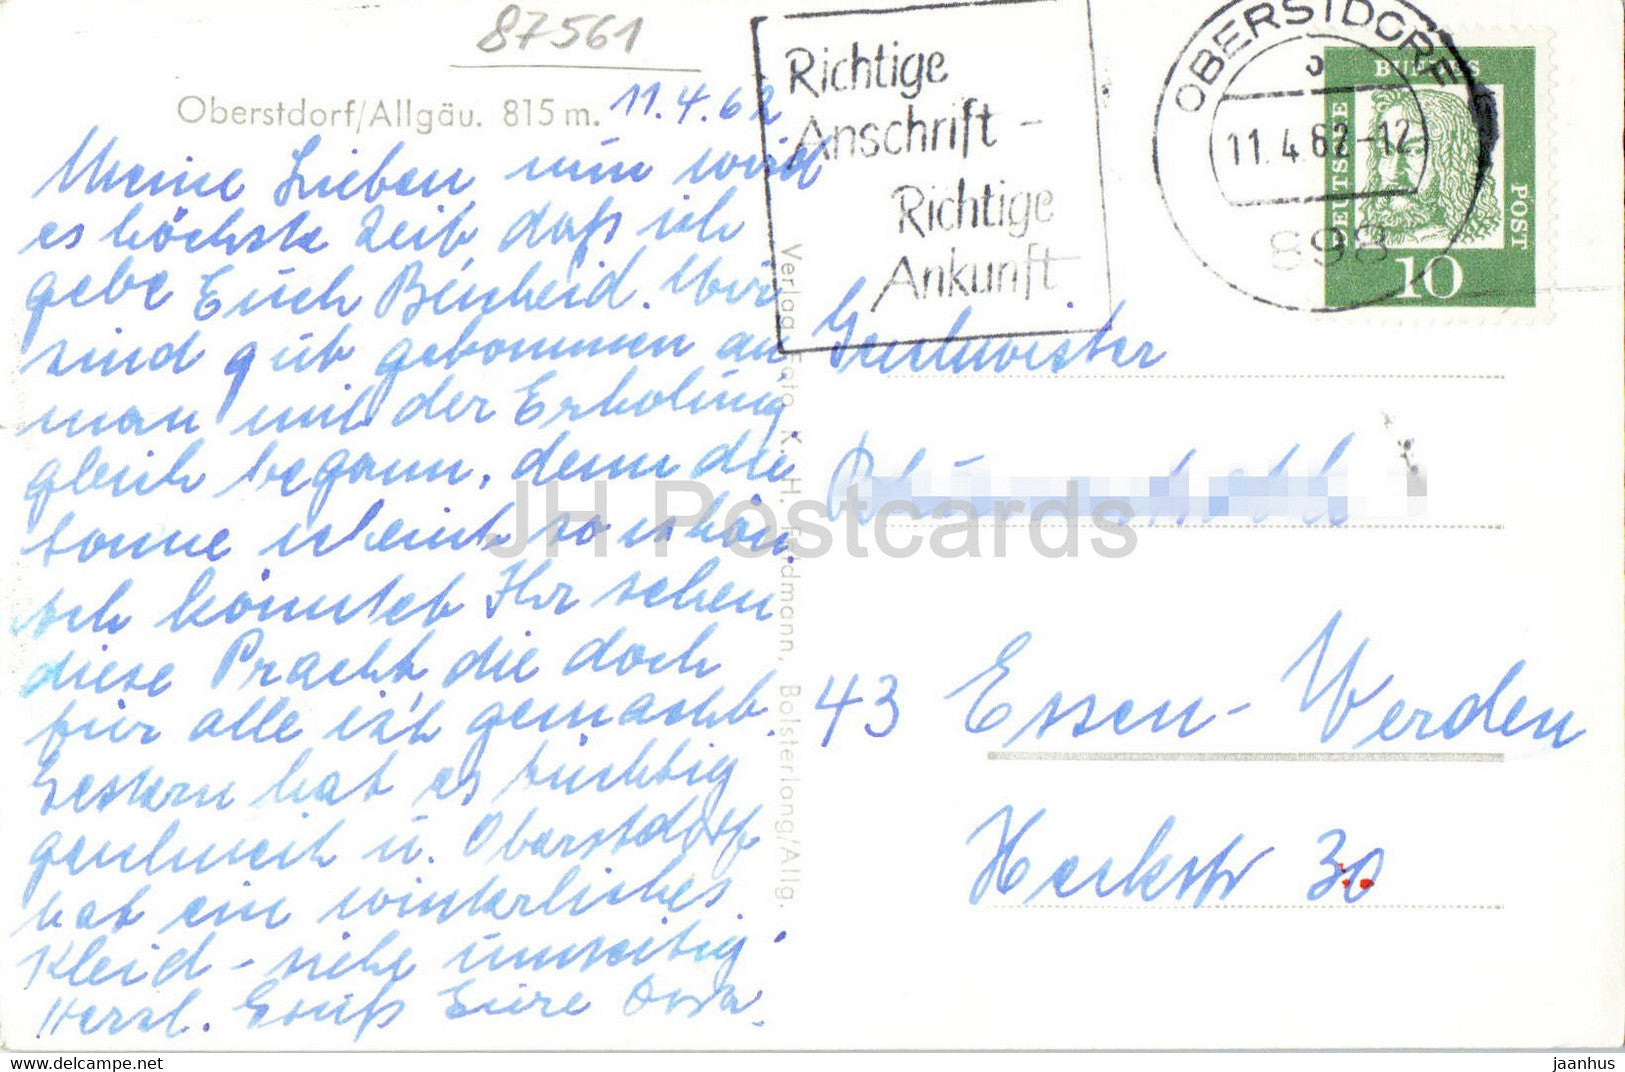 87561
Oberstdorf/Allgäu. 815 m.
11.4.62
Meine Lieben nun wird
es höchste Zeit daß ich
gebe Euch Bescheid. Wir
sind gut gekommen an
man mit der Erholung
gleich begann, denn die
Sonne scheint so schön.
Ich könntet Ihr sehen
diese Pracht, die doch
für alle ist gemacht.
Gestern hat es tüchtig
geschneit u. Oberstdorf
hat ein winterliches
Kleid - siehe umseitig.
Herzl. Gruß Eure
Verlag Foto K. H. Feldmann, Bolsterlang/Allg.
Richtige
Anschrift -
Richtige
Ankunft
OBERSTDORF
b
11.4.62-12
898
DEUTSCHE
BUNDES
POST
10
Geschwister
43 Essen-Werden
Heckstr 30
JH Postcards
www.delcampe.net
jaanhus